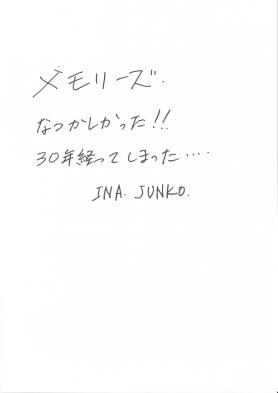 メモリーズ.
なつかしかった!!
30年経ってしまった....
INA. JUNKO.